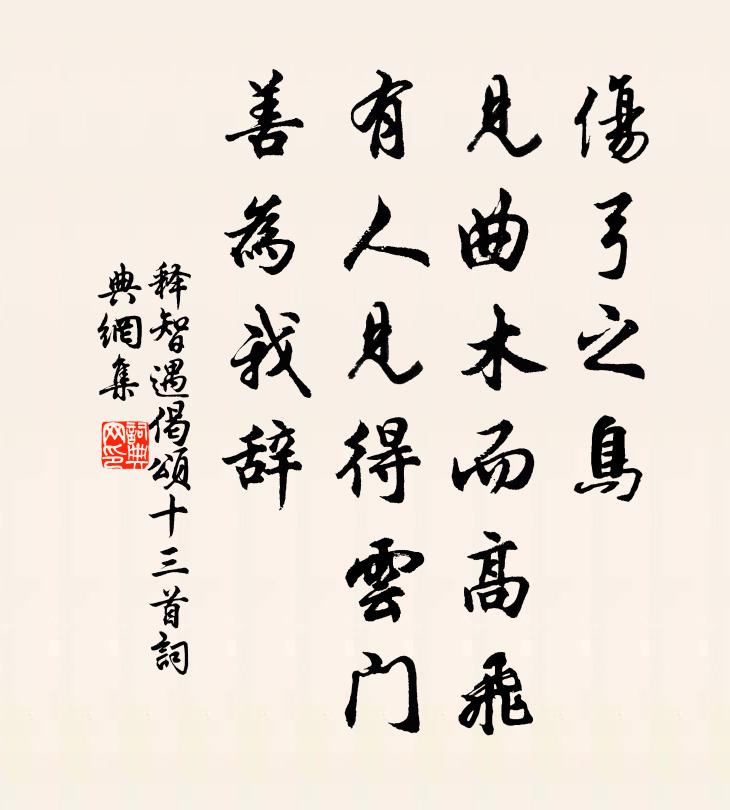 傷弓之鳥
見曲木而高飛
有人見得雲門
善為我辞
释智遇偈頌十三首詞
典網集
詞典
网印